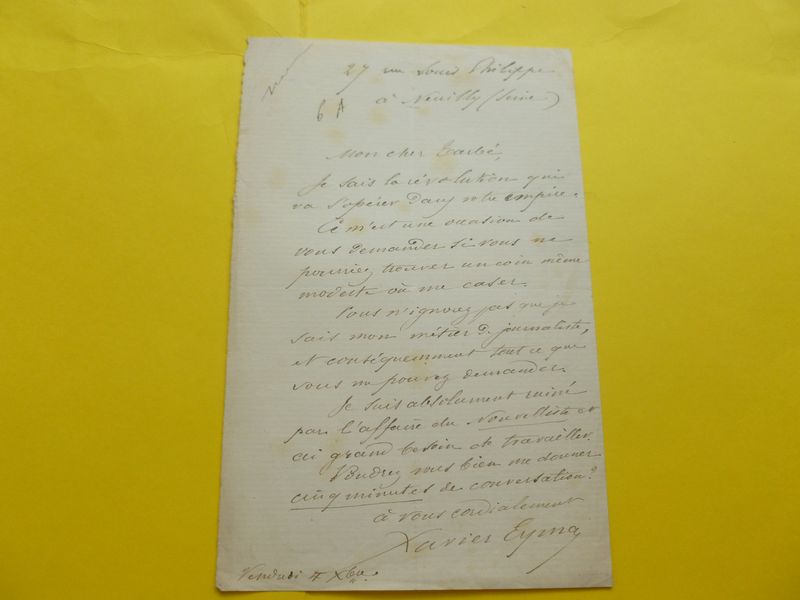 27 rue Louis Philippe
6 A
à Neuilly (Seine)
Mon cher Tarbé,
Je sais la révolution qui
va s'opérer dans votre empire.
Ce m'est une occasion de
vous demander si vous ne
pourriez trouver un coin même
modeste où me caser.
Vous n'ignorez pas que je
sais mon métier de journaliste,
et conséquemment tout ce que
vous me pouvez demander.
Je suis absolument ruiné
par l'affaire du Nouvelliste et
ai grand besoin de travailler.
Voudrez vous bien me donner
cinq minutes de conversation?
à vous cordialement
Xavier Eyma
Vendredi 4 Xbre